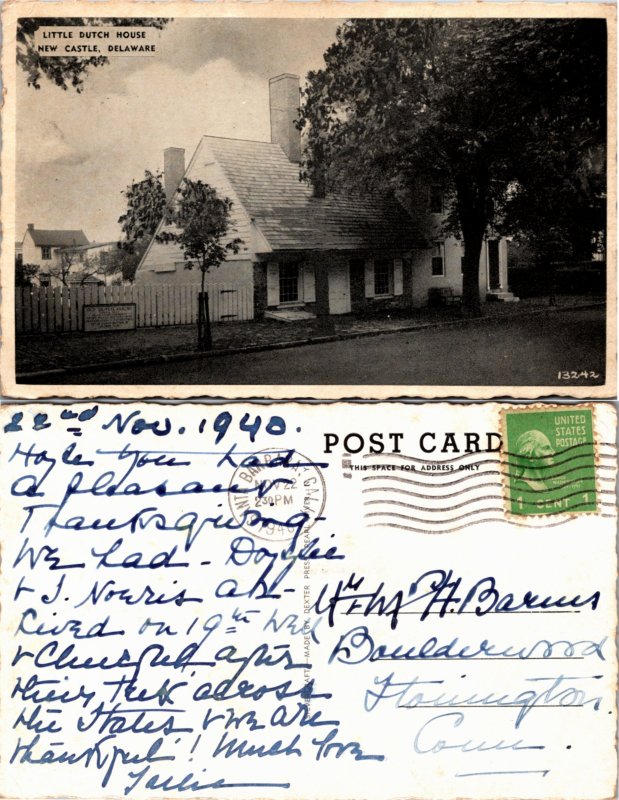 LITTLE DUTCH HOUSE
NEW CASTLE, DELAWARE
13242
22nd Nov. 1940.
Hope you had
a pleasant
Thanksgiving
We had -
& J. Norris ar-
rived on 19th
& cheerful after
their trek across
the States & we are
thankful! Much love
POST CARD
THIS SPACE FOR ADDRESS ONLY
SANTA BARBARA CALIF
NOV 22
2 30 PM
1940
UNITED
STATES
POSTAGE
1 CENT 1
MADE BY DEXTER PRESS, PEARL RIVER
P. H. Barnes
Boulderwood
Stonington
Conn.